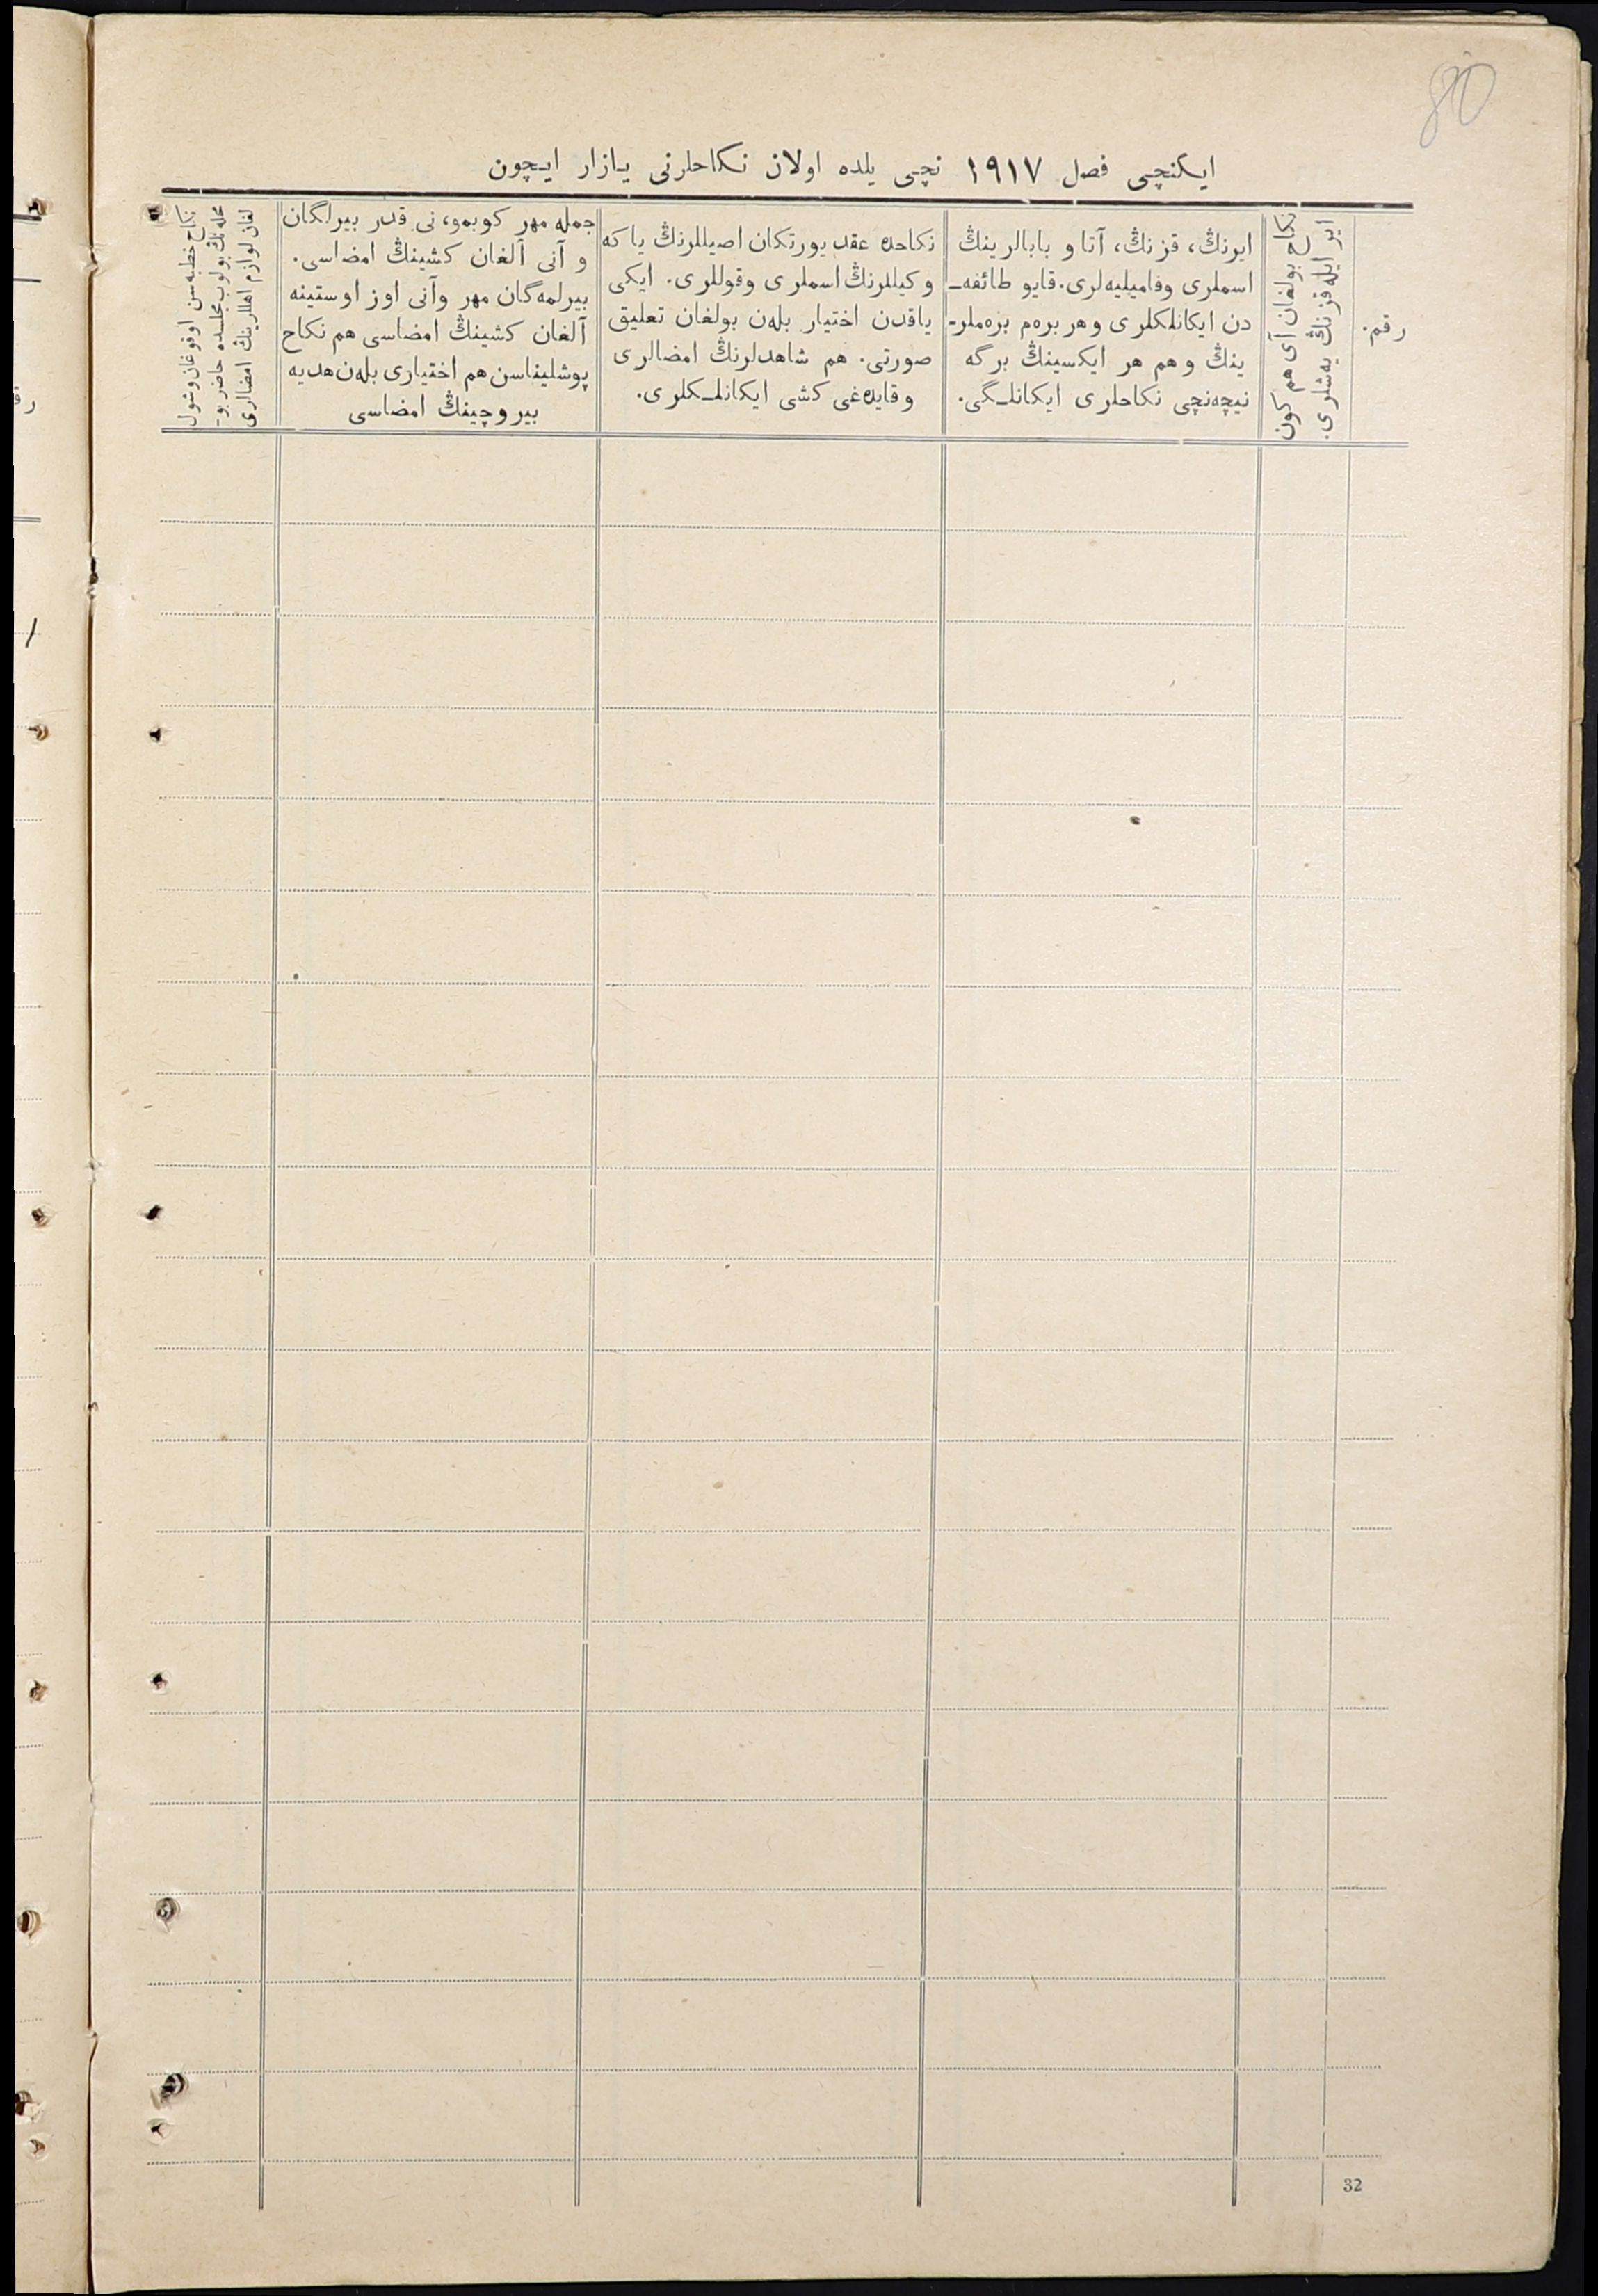 80
ایکنچی فصل ۱۹۱۷ نچی یلده اولان نکاحلرنی یازار ایچون
رقم.
ایر ایله قزنڭ یەشلری.
نکاح بولغان آی هم کون
ایرنڭ، قزنڭ، آتا و بابالرینڭ
اسملری وفامیلیەلری. قایو طائفه-
دن ایکانلکلری وهر برەم برەملر-
ینڭ وهم هر ایکسینڭ برگه
نیچەنچی نکاحلری ایکانلـگی.
نکاحده عقد یورتکان اصیللرنڭ یاکه
وکیللرنڭ اسملری وقوللری. ایکی
یاقدن اختیار بلەن بولغان تعلیق
صورتی. هم شاهدلرنڭ امضالری
وقایدەغی کشی ایکانلـکلری.
جمله مهر کوبمو، نی قدر بیرلگان
و آنی آلغان کشینڭ امضاسی.
بیرلمەگان مهر وآنی اوز اوستینه
آلغان کشینڭ امضاسی هم نکاح
پوشلیناسن هم اختیاری بلەن هدیه
بیروچینڭ امضاسی
نکاح خطبەسن اوقوغان وشول
محلەنڭ بولوب مجلسده حاضر بو-
لغان لوازم اهللرینڭ امضالری
32